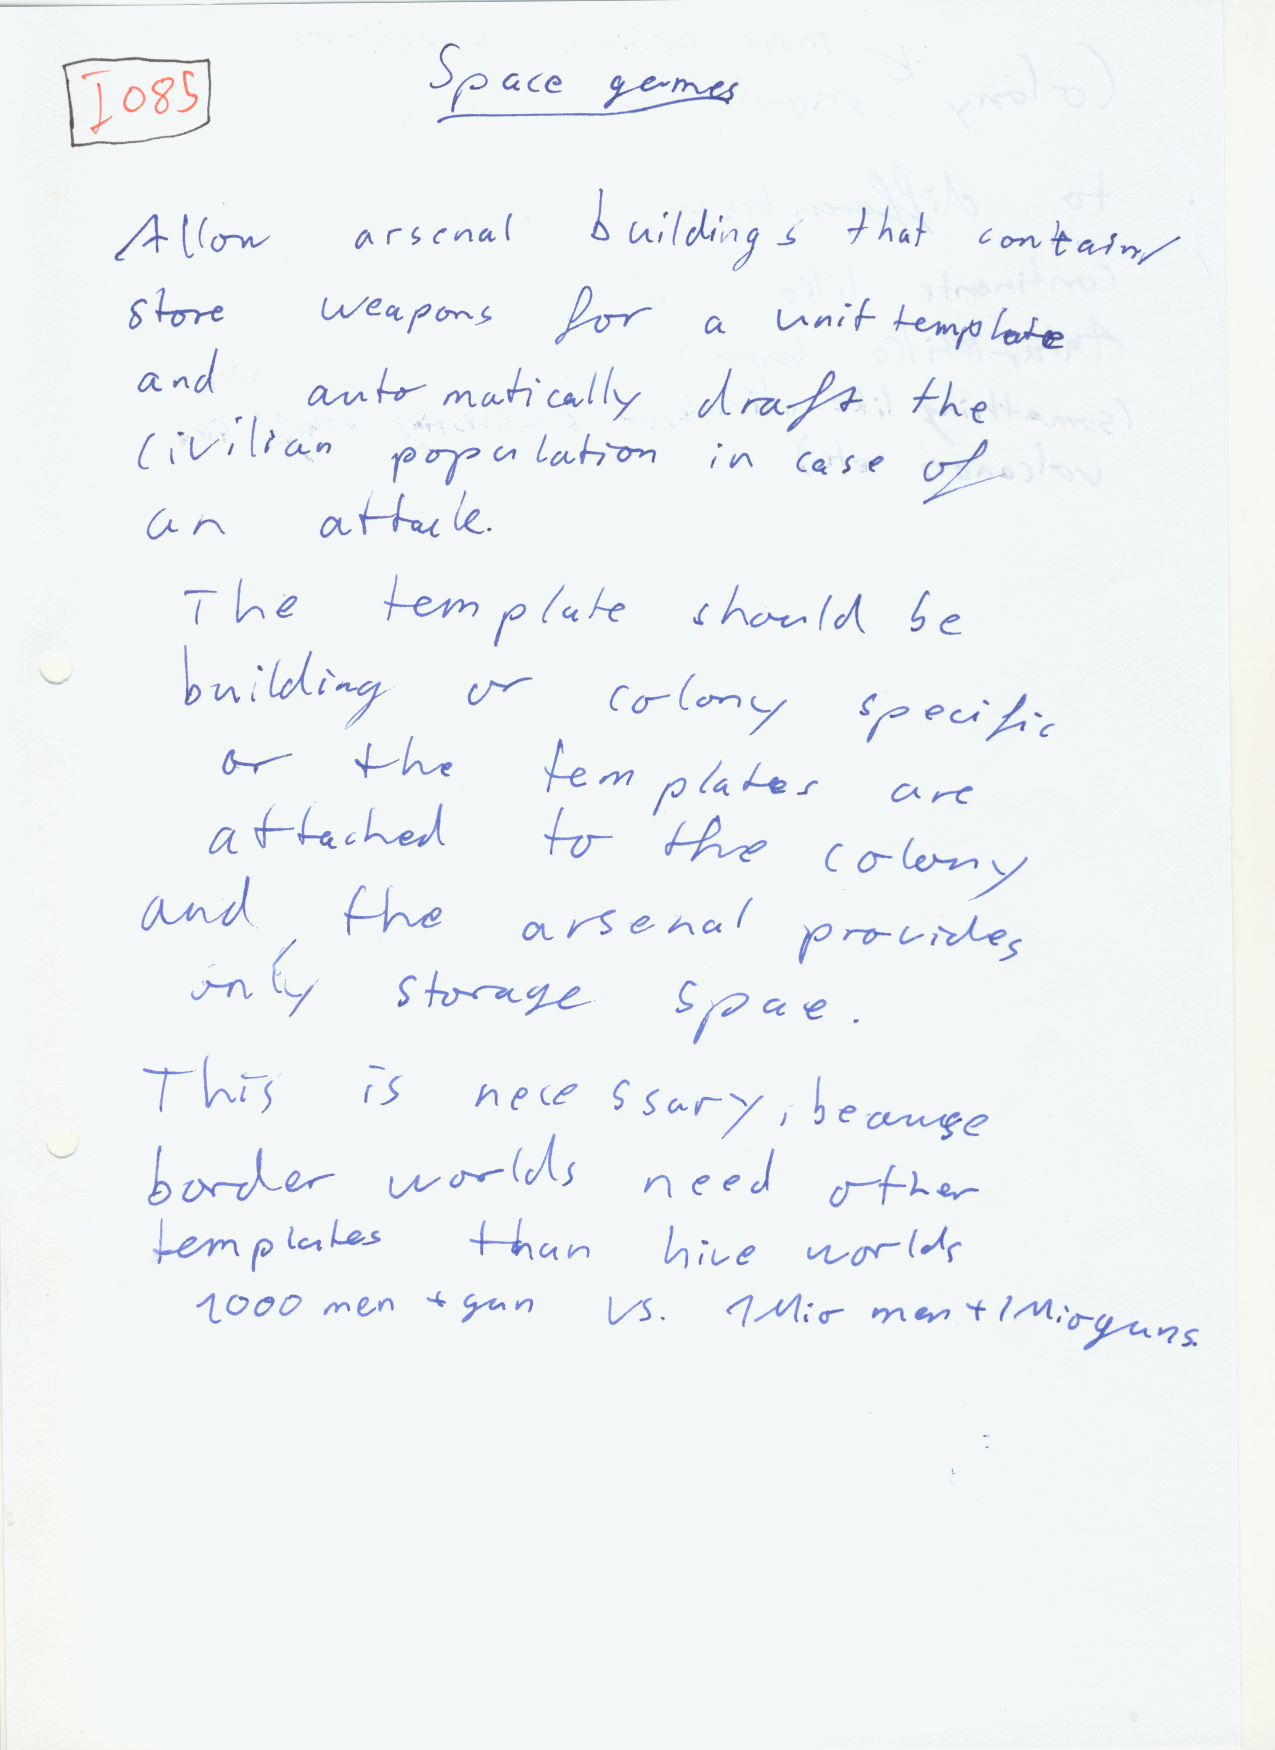 I085
Space games
Allow arsenal buildings that contain/
store weapons for a unit template
and automatically draft the
civilian population in case of
an attack.
The template should be
building or colony specific
or the templates are
attached to the colony
and the arsenal provides
only storage spae.
This is necessary, beause
border worlds need other
templates than hive worlds
1000 men + gun vs. 1Mio men + 1Mio guns.